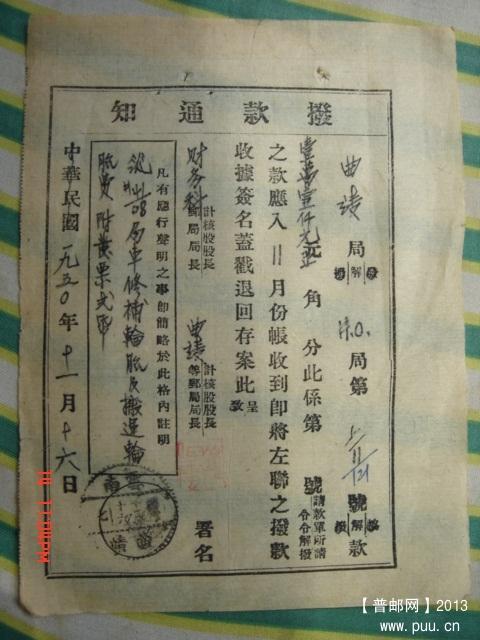 撥款通知
曲靖局 第 號 款
壹萬壹仟元正 角 分此係第 號請款單所請
之款應入11月份帳收到即將左聯之撥款
收據簽名蓋戳退回存案此
財务科 計核股股長
郵局局長
曲靖 計核股股長
等郵局局長
署名
凡有應行聲明之事即簡略於此格內註明
局車修補輪胎及搬運輪
胎費 附發票弍帋
中華民國一九五〇年十一月十六日
【普邮网】2013
www.puu.cn